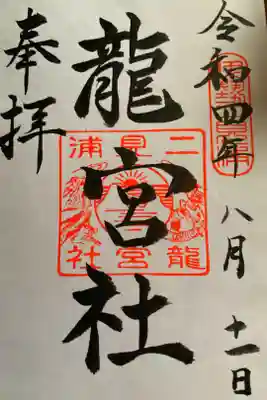 令和四年八月十一日
龍宮社
奉拝
二見浦
龍宮社